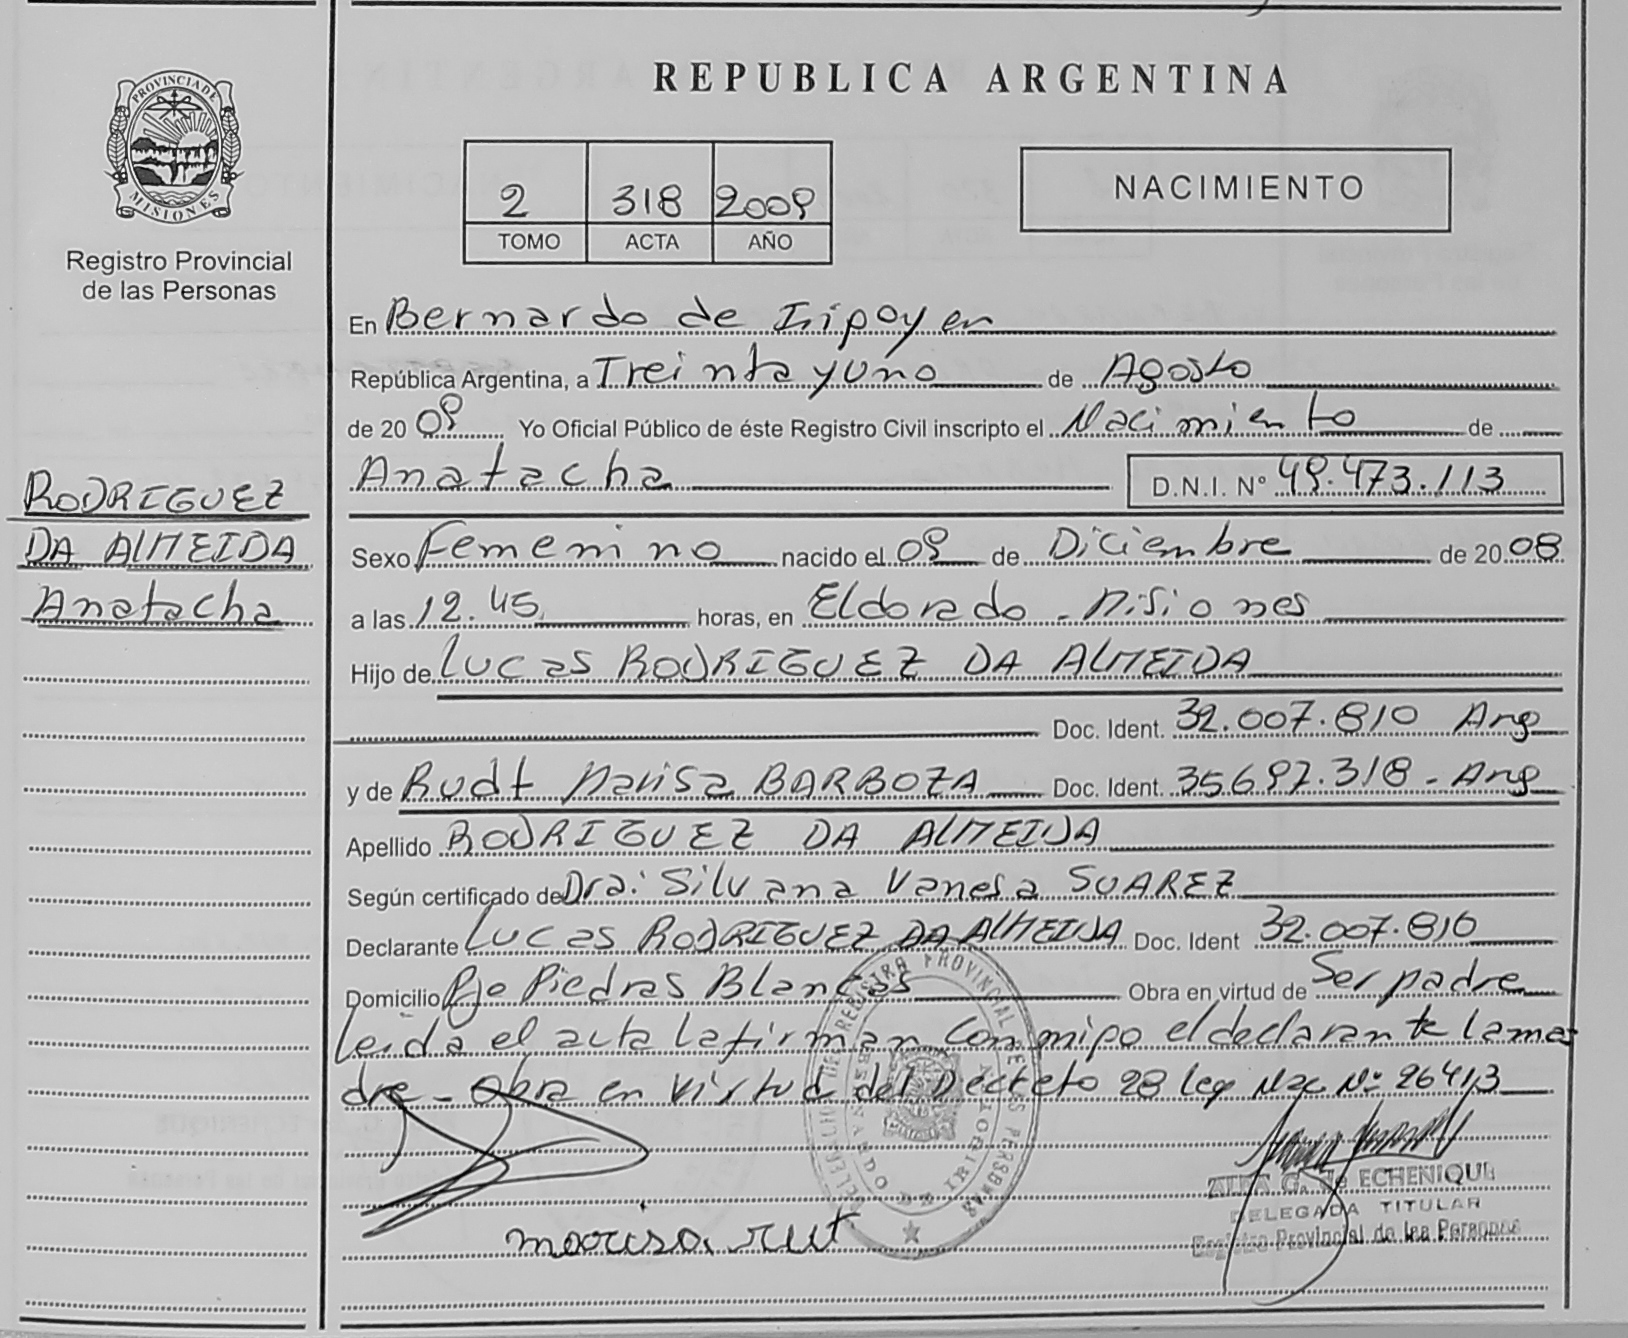 PROVINCIA DE
MISIONES
Registro Provincial
de las Personas
RODRIGUEZ
DA ALMEIDA
Anatacha
REPUBLICA ARGENTINA
2 318 2009
TOMO ACTA AÑO
NACIMIENTO
En Bernardo de Irigoyen
República Argentina, a Treinta y uno de Agosto
de 20 09 Yo Oficial Público de éste Registro Civil inscripto el Nacimiento de
Anatacha D.N.I. Nº 49.473.113
Sexo Femenino nacido el 09 de Diciembre de 20 08
a las 12.45 horas, en Eldorado - Misiones
Hijo de Lucas RODRIGUEZ DA ALMEIDA
Doc. Ident. 32.007.810 Arg
y de Rudt Marisa BARBOZA Doc. Ident. 35.697.318 - Arg
Apellido RODRIGUEZ DA ALMEIDA
Según certificado de Dra. Silvana Vanesa SUAREZ
Declarante Lucas RODRIGUEZ DA ALMEIDA Doc. Ident 32.007.810
Domicilio Pje Piedras Blancas Obra en virtud de Ser padre
leida el acta la firman conmigo el declarante la ma
dre - Obra en virtud del Decreto 28 ley Nac Nº 26413
marisa rut
G. de ECHENIQUE
DELEGADA TITULAR
Registro Provincial de las Personas